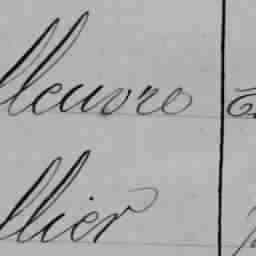 lleuvre
llier